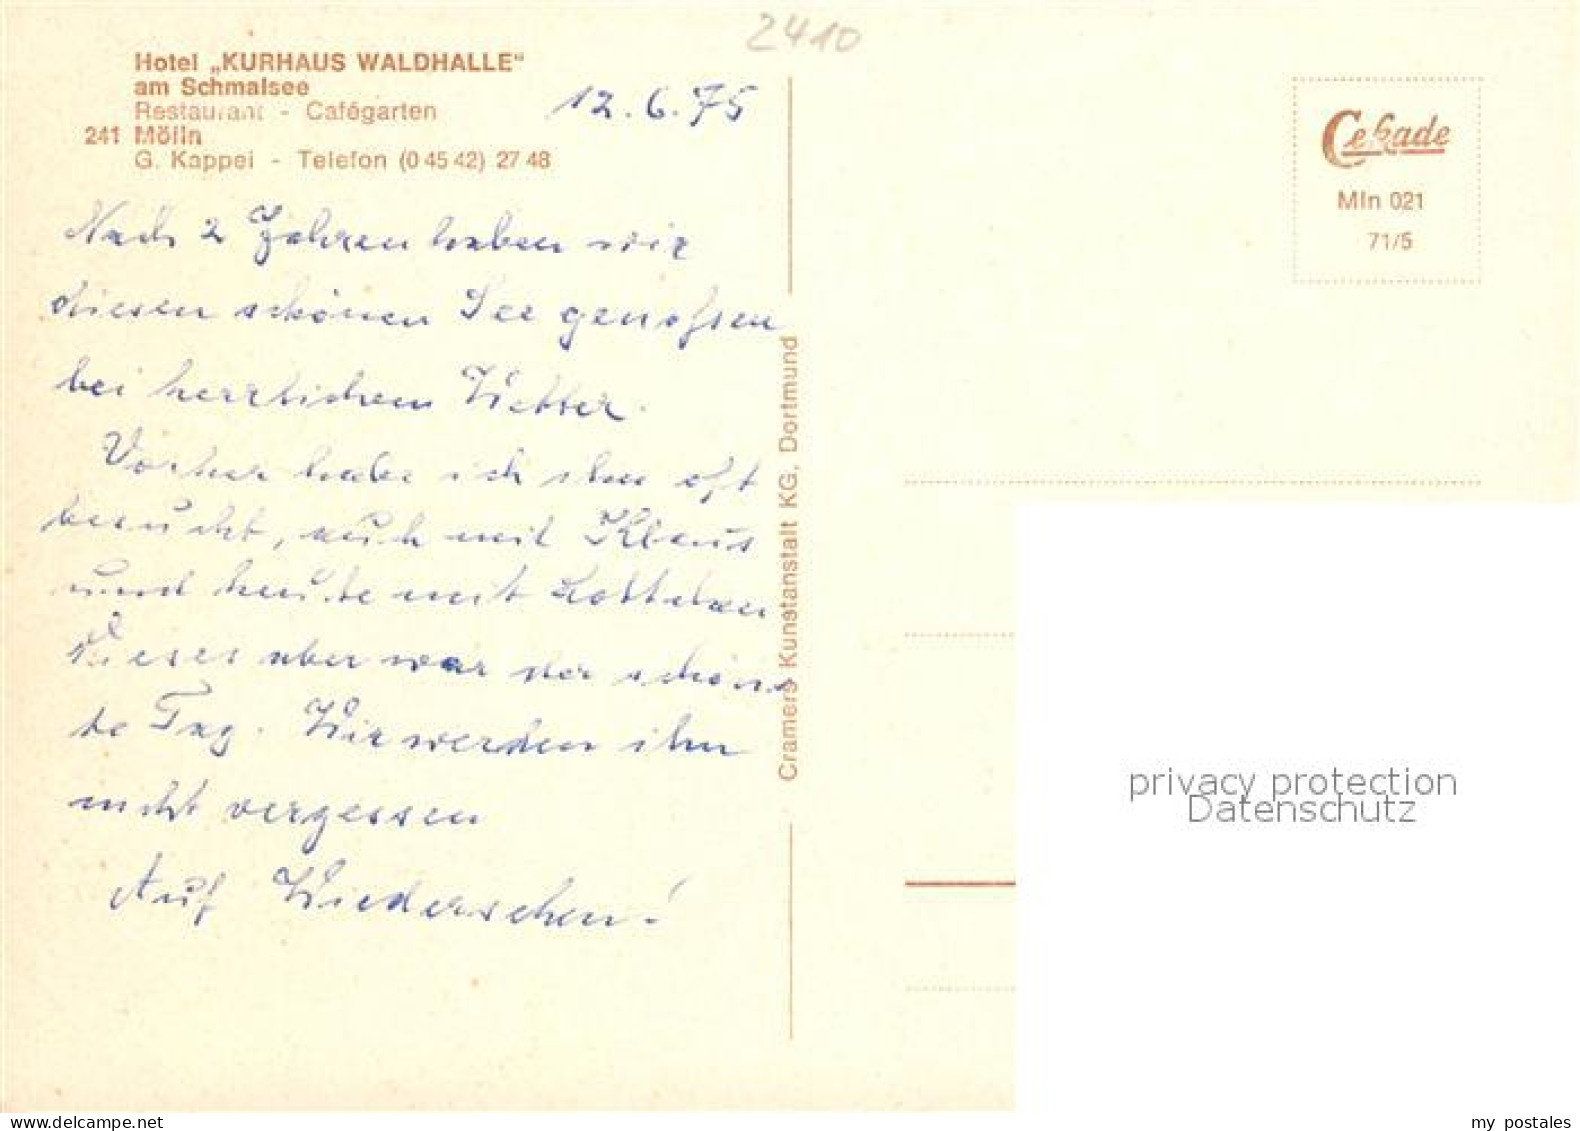 2410
Hotel „KURHAUS WALDHALLE"
am Schmalsee
Restaurant - Cafégarten
241 Mölln
G. Kappel - Telefon (0 45 42) 27 48
12.6.75
Nach 2 Jahren haben wir
diesen schönen See genossen
bei herrlichem Wetter.
Vorher habe ich ihn oft
besucht, auch mit Klaus
und heute mit Lottchen
Dieses aber war der schöns
te Tag. Wir werden ihn
nicht vergessen
Auf Wiedersehen!
Cramers Kunstanstalt KG, Dortmund
Cekade
Mln 021
71/5
privacy protection
Datenschutz
my postales